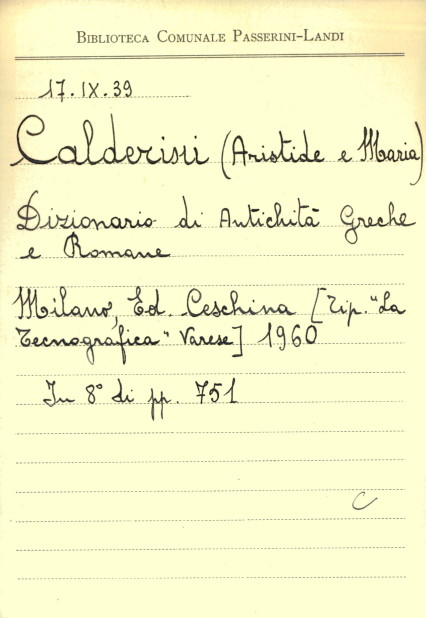 BIBLIOTECA COMUNALE PASSERINI-LANDI
17.IX.39
Calderini (Aristide e Maria)
Dizionario di Antichità Greche
e Romane
Milano, Ed. Ceschina [Tip. "La
Tecnografica" Varese] 1960
In 8° di pp. 751
C